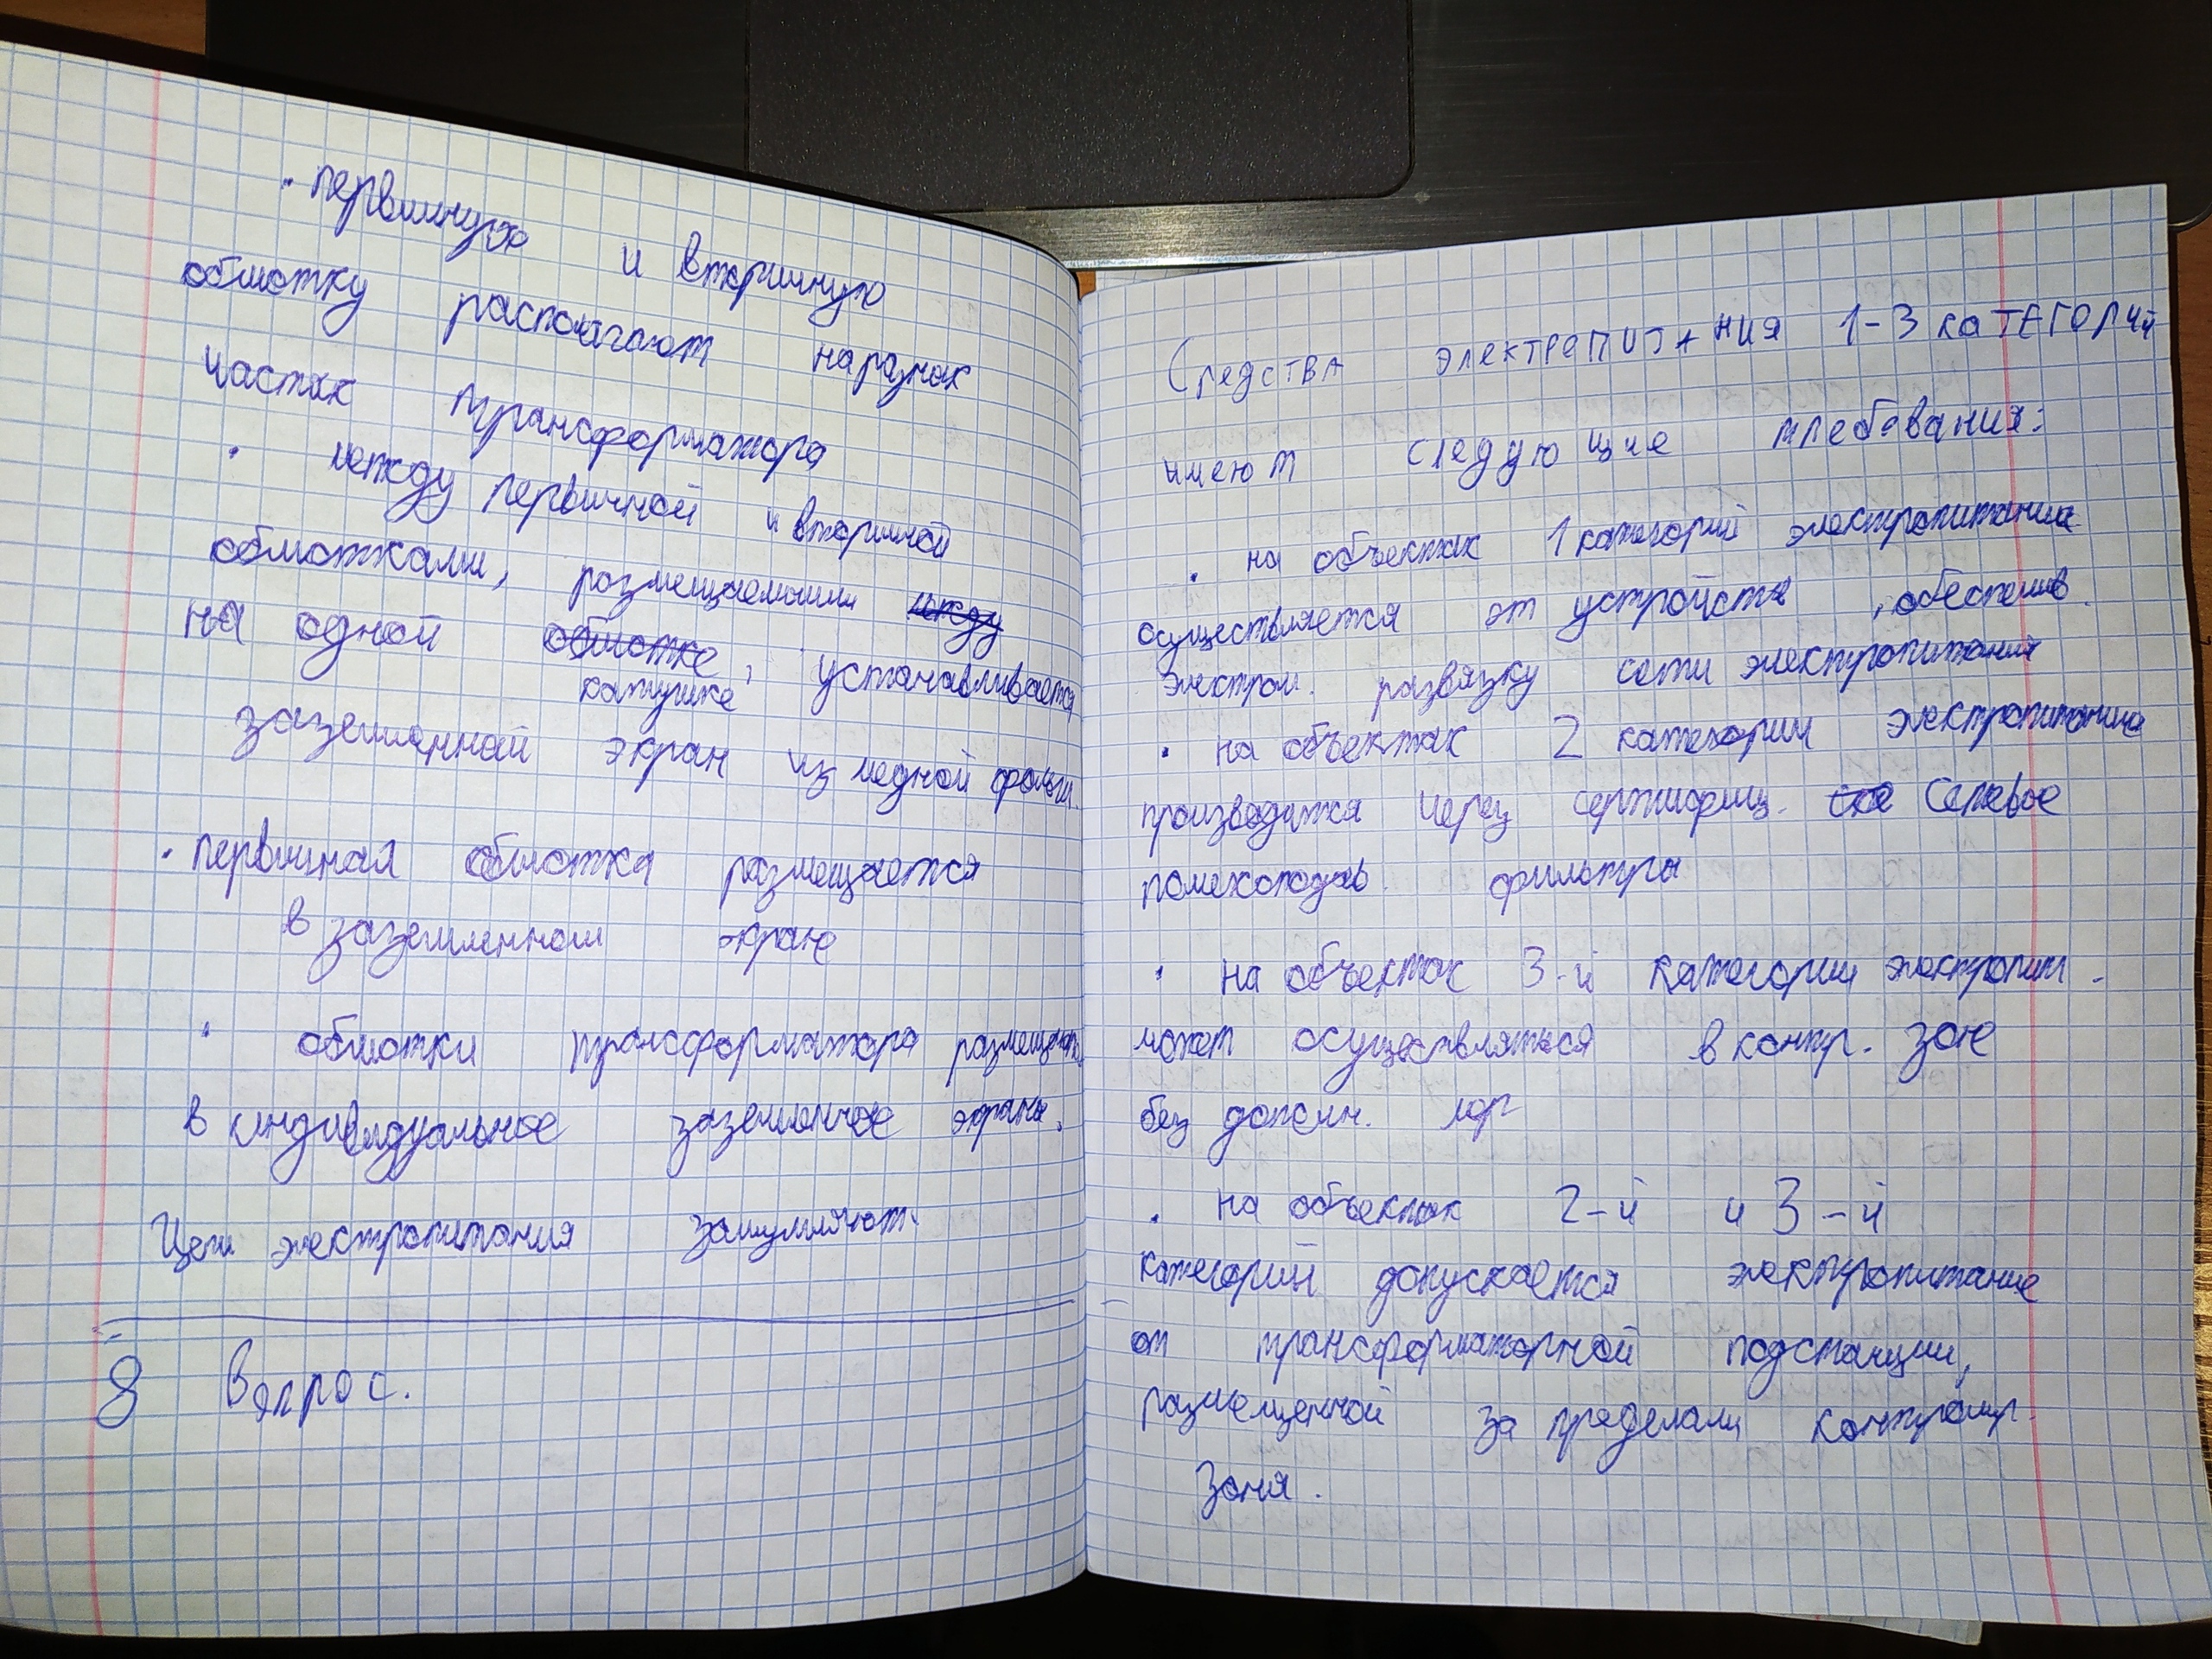 · первичную и вторичную
обмотку располагают на разных
частях трансформатора
· между первичной и вторичной
обмотками, размещаемыми между
на одной обмотке, устанавливается
катушке
заземленной экран из медной фольги.
· первичная обмотка размещается
в заземленном экране
· обмотки трансформатора размещают
в индивидуальное заземленное экраны.
Цепи электропитания зашумляют.
8 Вопрос.
Средства электрепитания 1-3 категорий
имеют следующие требования:
· на объектах 1 категорий электропитание
осуществляется от устройств, обеспечив.
электром. развязку сети электропитания
· на объектах 2 категории электропитание
производится через сертифиц. сое сетевое
помехоподав. фильтры
· на объектах 3-й категории электропит.
может осуществляться в контр. зоне
без дополн. мер
· на объектах 2-й и 3-й
категорий допускается электропитание
от трансформаторной подстанции,
размещенной за пределами контролир.
зоня.